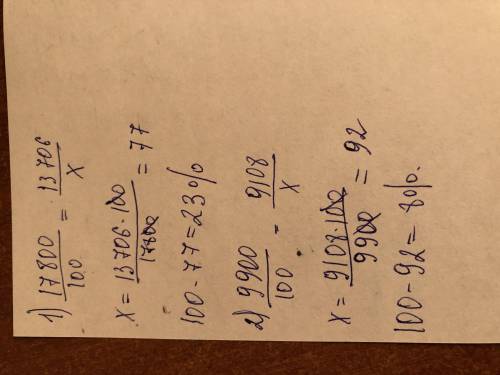 1) 17800/100 = 13706/x
x = 13706·100/17800 = 77
100-77=23%
2) 9900/100 - 9108/x
x = 9108·100/9900 = 92
100-92= 8%.